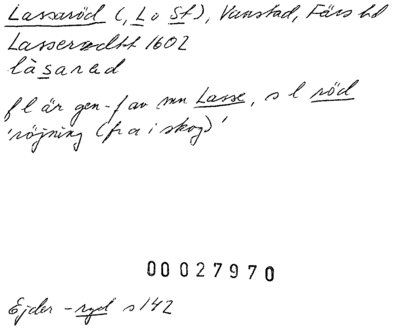 Lassaröd (, L o St), Vanstad, Färs hd
Lasserødtt 1602
làsarad
f l är gen-f av mn Lasse, s l röd
'röjning (fr a i skog)'
00027970
Ejder -ryd s 142